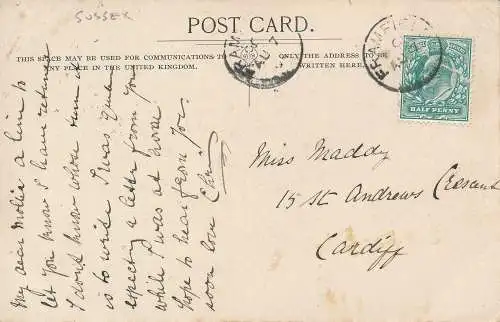 SUSSEX
POST CARD.
THIS SPACE MAY BE USED FOR COMMUNICATIONS TO
ANY PLACE IN THE UNITED KINGDOM.
ONLY THE ADDRESS TO BE
WRITTEN HERE.
FRAM
AU 7
FRAMFIELD
HALF PENNY
My dear a line to
let you know I have returned
I dont know whose turn it
is to write I was quite
expecting a letter from you
while I was at home
hope to hear from you
soon love
Miss Maddy
15 St Andrews Cresent
Cardiff